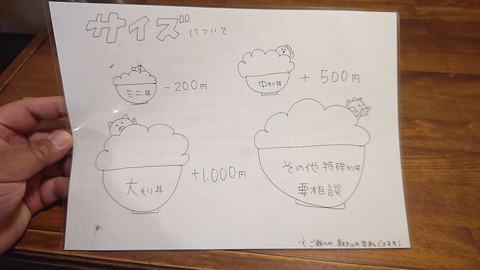 サイズについて
ミニ丼 -200円
中もり丼 +500円
大もり丼 +1.000円
その他特殊もり丼
要相談